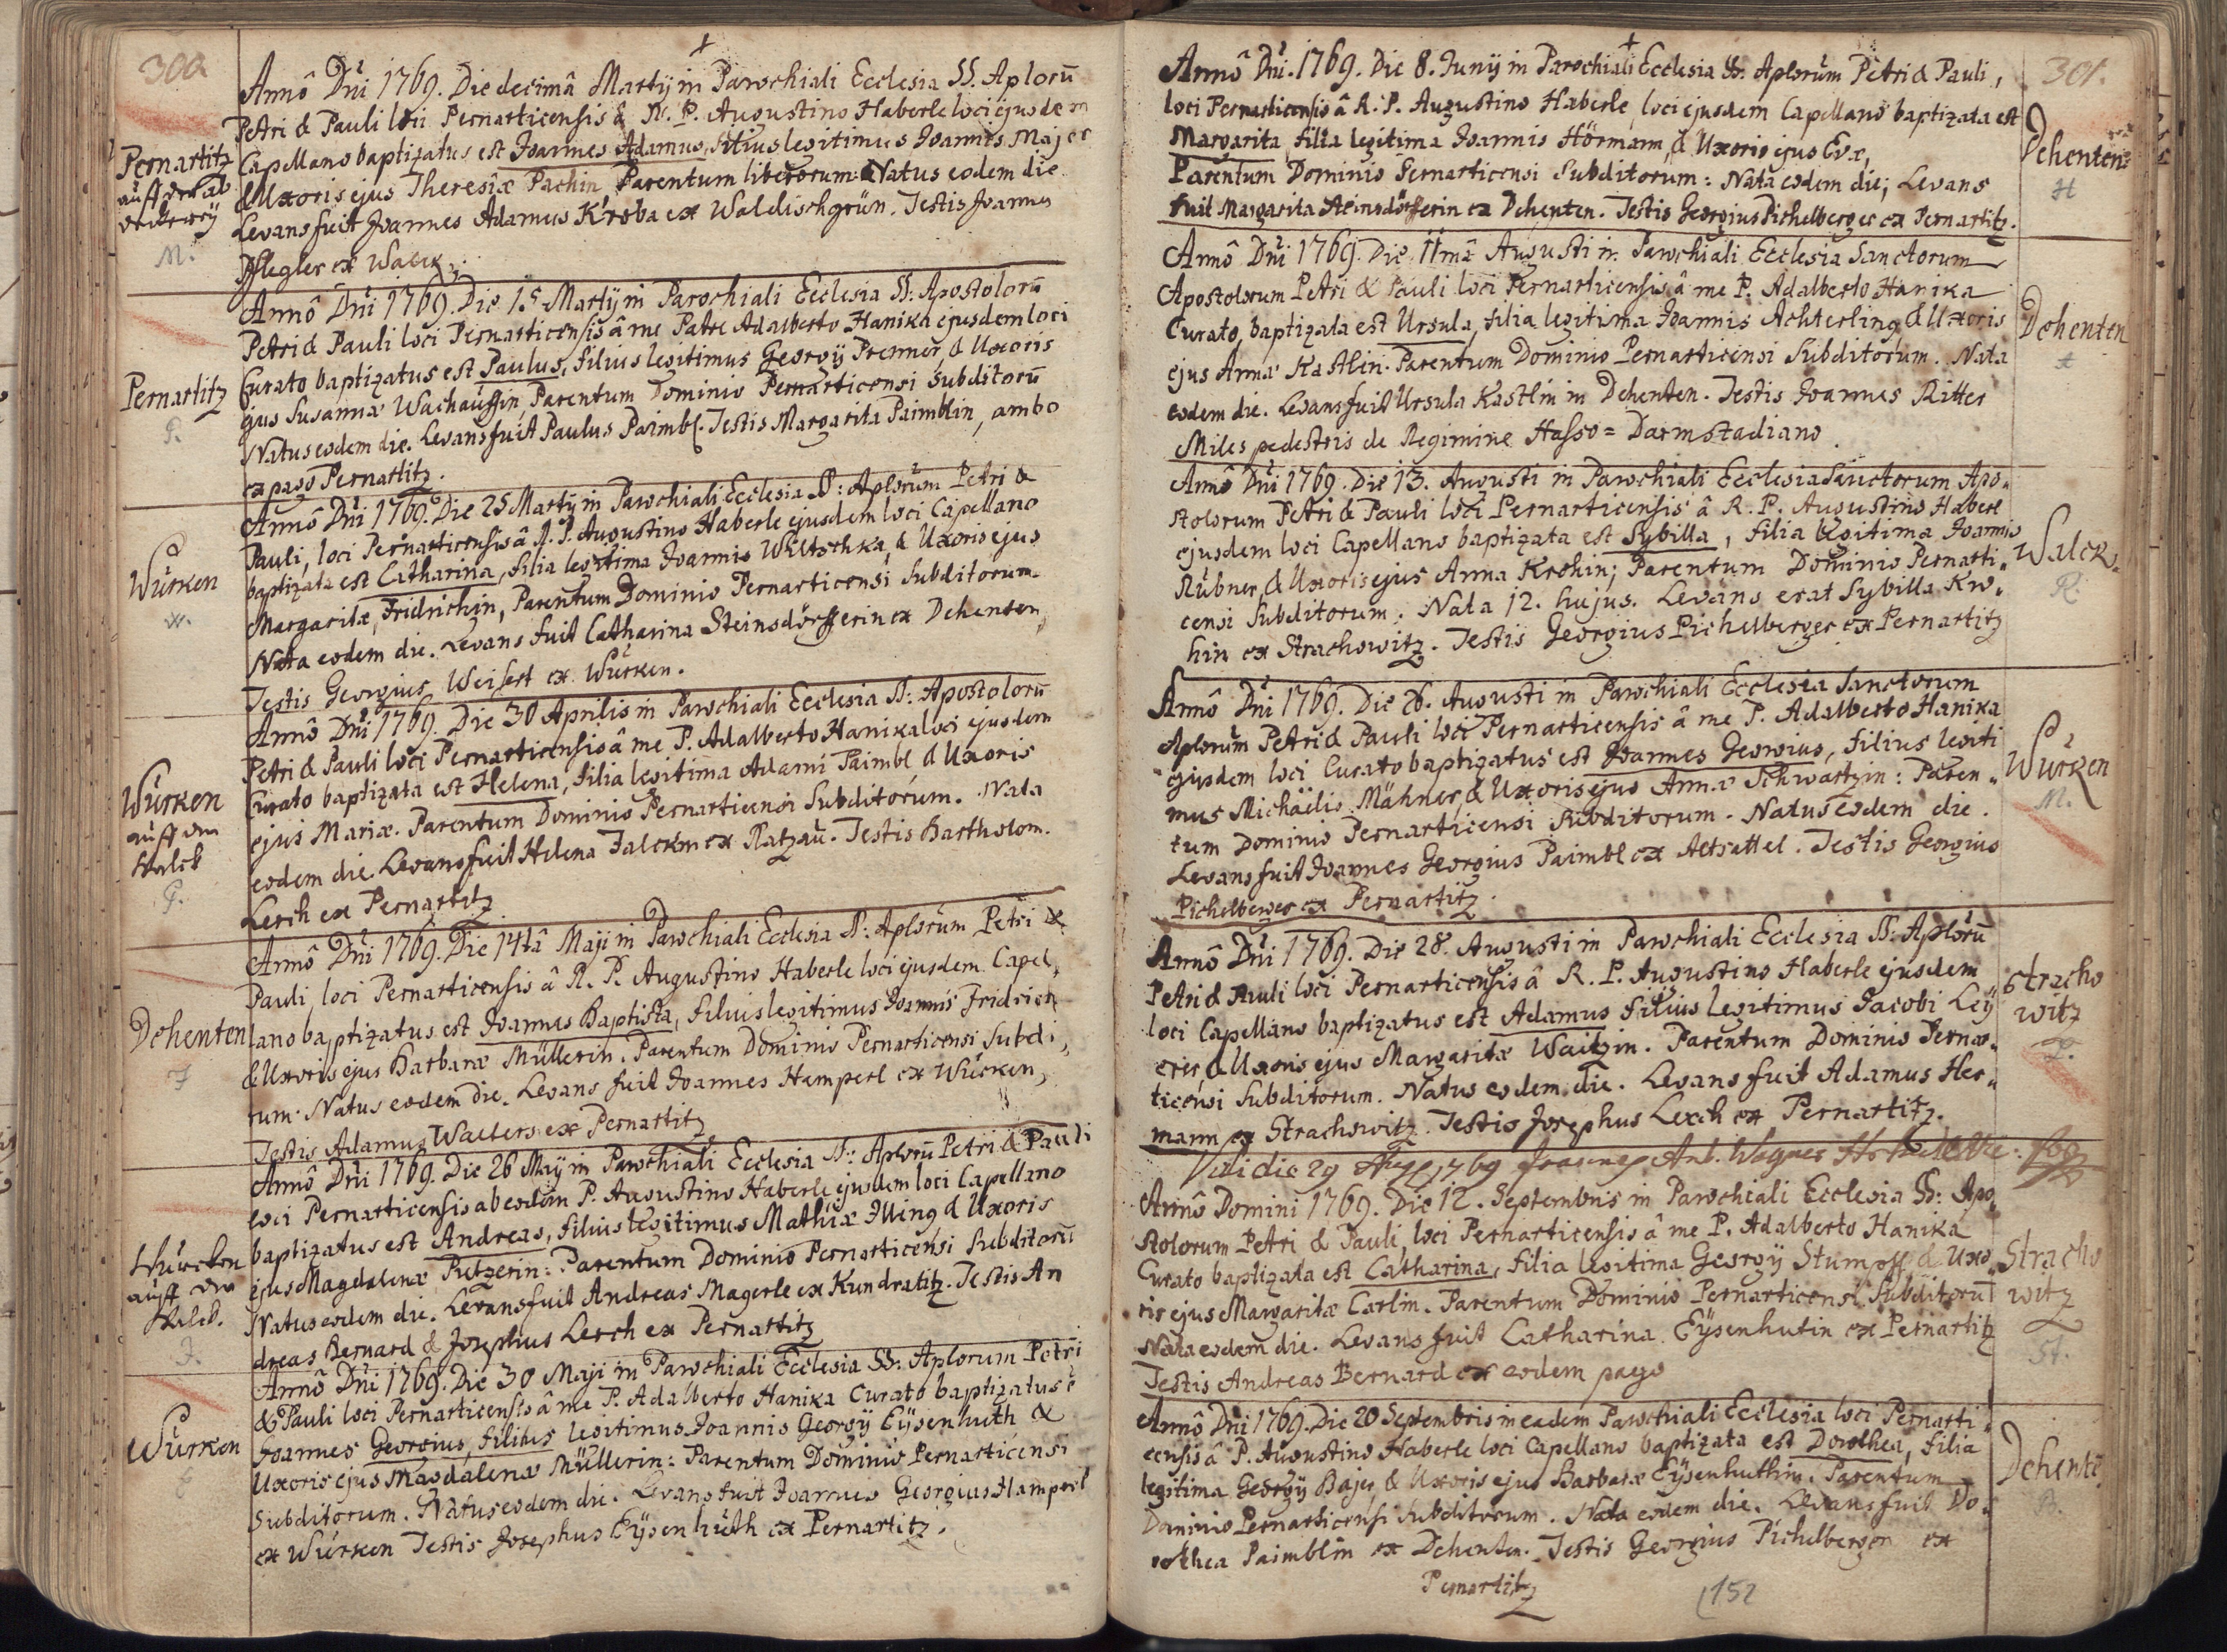 300
Annô Dni 1769. Die decimâ Martij in Parochiali Ecclesia SS. Aplorū
Petri & Pauli loci Pernarticensis à R. P. Augustino Haberle loci ejusdem
Capellano baptizatus est Joannes Adamus, filius legitimus Joannis Majer
& Uxoris ejus Theresiæ Pachin Parentum liberorum: Natus eodem die
Levans fuit Joannes Adamus Kroba ex Waldischgrün. Testis Joannes
Pflegler ex Walck.
Pernartitz
auff der
M.
Annô Dni 1769. Die 15 Martij in Parochiali Ecclesia SS: Apostolorū
Petri & Pauli loci Pernarticensis â me Patre Adalberto Hanika ejusdem loci
Curato baptizatus est Paulus, filius legitimus Georgij Prenner, & Uxoris
ejus Susannæ Wachauffin, Parentum Dominio Pernarticensi subditorū
Natus eodem die. Levans fuit Paulus Paimbl. Testis Margarita Paimblin, ambo
ex pago Pernartitz.
Pernartitz
P.
Annô Dni 1769. Die 25 Martij in Parochiali Ecclesia SS: Aplorum Petri &
Pauli, loci Pernarticensis â R. P. Augustino Haberle ejusdem loci Capellano
baptizata est Catharina, filia legitima Joannis Wiltschka, & Uxoris ejus
Margaritæ, Fridrichin, Parentum Dominio Pernarticensi Subditorum
Nata eodem die. Levans fuit Catharina Steinsdörfferin ex Dehenten,
Testis Georgius Weisert ex Würken.
Würken
W.
Annô Dni 1769. Die 30 Aprilis in Parochiali Ecclesia SS: Apostolorū
Petri & Pauli loci Pernarticensis â me P. Adalberto Hanika loci ejusdem
Curato baptizata est Helena, filia legitima Adami Paimbl & Uxoris
ejus Mariæ. Parentum Dominio Pernarticensi Subditorum. Nata
eodem die. Levans fuit Helena Falckin ex Ratzau. Testis Bartholom.
Lerch ex Pernartitz
Würken
auff der
Walck
P.
Annô Dni 1769. Die 14tâ Maji in Parochiali Ecclesia SS: Aplorum Petri &
Pauli, loci Pernarticensis â R. P. Augustino Haberle loci ejusdem Capel,
lano baptizatus est Joannes Baptista, filius legitimus Joannis Fridrich
& Uxoris ejus Barbaræ Müllerin. Parentum Dominio Pernarticensi Subdi,
rum. Natus eodem Die. Levans fuit Joannes Hamperl ex Würken,
Testis Adamus Walters ex Pernartitz
Dehenten
F
Annô Dni 1769. Die 26 Maij in Parochiali Ecclesia SS: Aplorū Petri & Pauli
loci Pernarticensis ab eodem P. Augustino Haberle ejusdem loci Capellano
baptizatus est Andreas, filius legitimus Mathiæ Illing & Uxoris
ejus Magdalenæ Putzerin: Parentum Dominio Pernarticensi Subditorū
Natus eodem die. Levans fuit Andreas Magerle ex Kundratitz. Testis An
dreas Bernard & Josephus Lerch ex Pernartitz
Würcken
auff der
Walck.
I.
Annô Dni 1769. Die 30 Maji in Parochiali Ecclesia SS: Aplorum Petri
& Pauli loci Pernarticensis â me P. Adalberto Hanika Curato baptizatus ē
Joannes Georgius, filius legitimus Joannis Georgij Eÿsenhuth &
Uxoris ejus Magdalenæ Müllerin: Parentum Dominio Pernarticensi
Subditorum. Natus eodem die. Levans fuit Joannes Georgius Hamperl
ex Würken Testis Josephus Eÿsenhuth ex Pernartitz.
Würken
E
301.
Annô Dni. 1769. Die 8. Junij in Parochiali Ecclesia SS. Aplorum Petri & Pauli,
loci Pernarticensis â R. P. Augustino Haberle, loci ejusdem Capellano baptizata est
Margarita, filia legitima Joannis Hörmann, & Uxoris ejus Evæ,
Parentum Dominio Pernarticensi Subditorum: Nata eodem die; Levans
fuit Margarita Steinsdörfferin ex Dehenten. Testis Georgius Pichelberger ex Pernartitz.
Dehenten
H
Annô Dni 1769. Die 11mâ Augusti in Parochiali Ecclesia Sanctorum
Apostolorum Petri & Pauli loci Pernarticensis â me P. Adalberto Hanika
Curato, baptizata est Ursula, filia legitima Joannis Achterling & Uxoris
ejus Annæ Kastlin. Parentum Dominio Pernarticensi Subditorum. Nata
eodem die. Levans fuit Ursula Kastlin in Dehenten. Testis Joannes Ritter
Miles pedestris de Regimine Hasso = Darmstadiano.
Dehenten
A
Annô Dni 1769. Die 13. Augusti in Parochiali Ecclesia Sanctorum Apo,
stolorum Petri & Pauli loci Pernarticensis â R. P. Augustino Haberl
ejusdem loci Capellano baptizata est Sybilla, filia legitima Joannis
Rübner, & Uxoris ejus Anna Krohin; Parentum Dominio Pernarti,
censi Subditorum. Nata 12. hujus. Levans erat Sybilla Kro,
hin ex Strachowitz. Testis Georgius Pichelberger ex Pernartitz
Walck.
R.
Annô Dni 1769. Die 26. Augusti in Parochiali Ecclesia Sanctorum
Aplorum Petri & Pauli loci Pernarticensis â me P. Adalberto Hanika
ejusdem loci Curato baptizatus est Joannes Georgius, filius legiti
mus Michaëlis Mähner, & Uxoris ejus Annæ Schwartzin: Paren,
tum Dominio Pernarticensi Subditorum. Natus eodem die.
Levans fuit Joannes Georgius Paimbl ex Altsattel. Testis Georgius
Pichelberger ex Pernartitz.
Würken
M.
Annô Dni 1769. Die 28. Augusti in Parochiali Ecclesia SS: Aplorū
Petri & Pauli loci Pernarticensis â R. P. Augustino Haberle ejusdem
loci Capellano baptizatus est Adamus filius legitimus Jacobi Leÿ
erer, & Uxoris ejus Margaritæ Waitzin. Parentum Dominio Pernar,
ticensi Subditorum. Natus eodem die. Levans fuit Adamus Her,
mann ex Strachowitz. Testis Josephus Lerch ex Pernartitz.
Stracho
witz
L.
Vidi die 29 Aug 1769 Joannes Ant. Wagner
Annô Domini 1769. Die 12. Septembris in Parochiali Ecclesia SS: Apo,
stolorum Petri & Pauli, loci Pernarticensis â me P. Adalberto Hanika
Curato baptizata est Catharina, filia legitima Georgij Stumpff & Uxo,
ris ejus Margaritæ Carlin. Parentum Dominio Pernarticensi Subditorū
Nata eodem die. Levans fuit Catharina Eÿsenhutin ex Pernartitz
Testis Andreas Bernard ex eodem pago
Stracho
witz
St.
Annô Dni 1769. Die 20 Septembris in eadem Parochiali Ecclesia loci Pernarti,
censis â P. Augustino Haberle loci Capellano baptizata est Dorothea, filia
legitima Georgij Bajer & Uxoris ejus Barbaræ Eÿsenhuthin. Parentum
Dominio Pernarticensi Subditorum. Nata eodem die. Levans fuit Do,
rothea Paimblin ex Dehenten. Testis Georgius Pichelberger ex
Pernartitz
Dehentē
B.
152